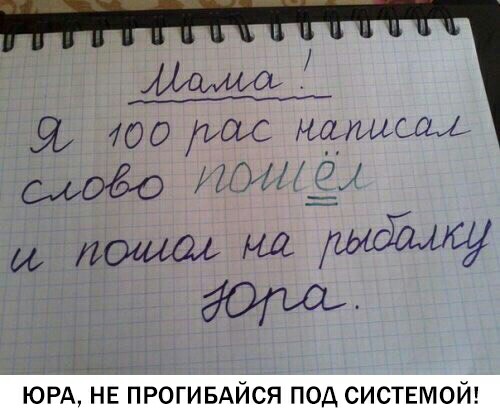 Мама!
Я 100 рас написал
слово пошёл
и пошол на рыбалку
Юра.
ЮРА, НЕ ПРОГИБАЙСЯ ПОД СИСТЕМОЙ!